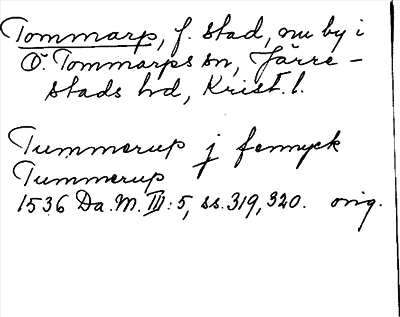 Tommarp, f. stad, nu by i
Ö. Tommarps sn, Järre-
stads hd, Krist. l.
Tummerup j femryck
Tummerup
1536 Da. M. III: 5, ss. 319, 320. orig.